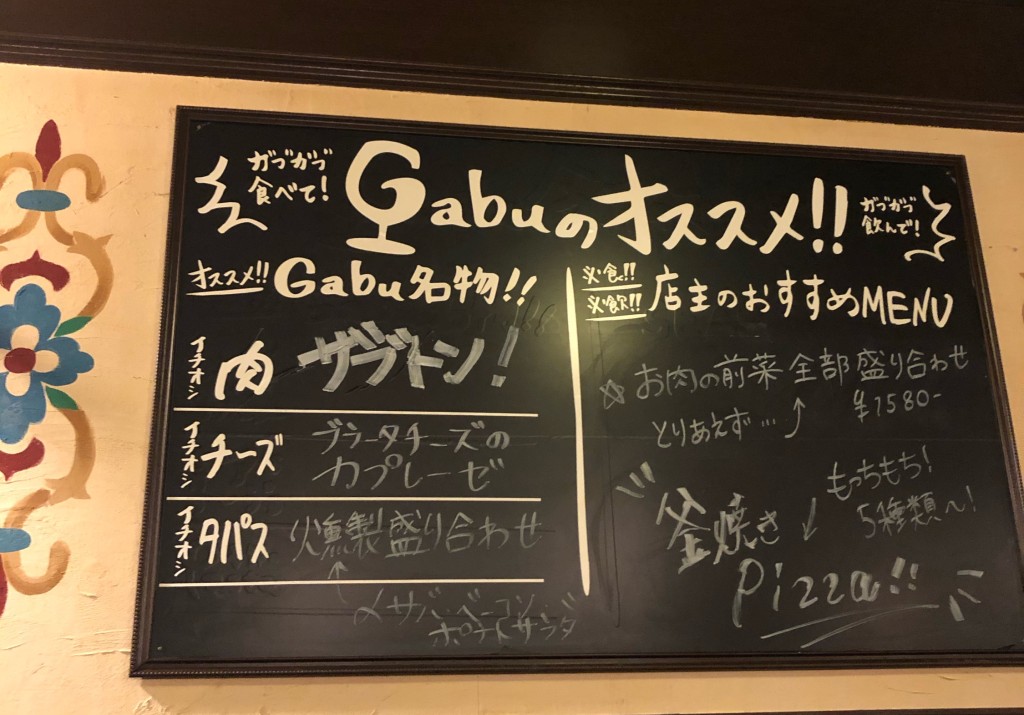 ガブガブ
食べて!
Gabuのオススメ!!
ガブガブ
飲んで!
オススメ!! Gabu名物!!
イチオシ 肉 ザブトン!
イチオシ チーズ ブラータチーズの
カプレーゼ
イチオシ タパス 燻製盛り合わせ
↑
〆サバ・ベーコン・
ポテトサラダ
必食!!
必飲!!
店主のおすすめMENU
☆お肉の前菜全部盛り合わせ
とりあえず…⤴ ¥1580-
もっちもち!
5種類〜!
釜焼き
Pizza!!